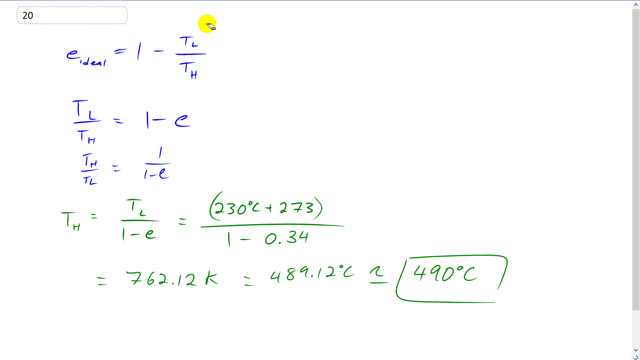 20
e_ideal = 1 - T_L / T_H
T_L / T_H = 1 - e
T_H / T_L = 1 / (1-e)
T_H = T_L / (1-e) = (230°C + 273) / (1 - 0.34)
= 762.12 K = 489.12°C ≃ 490°C